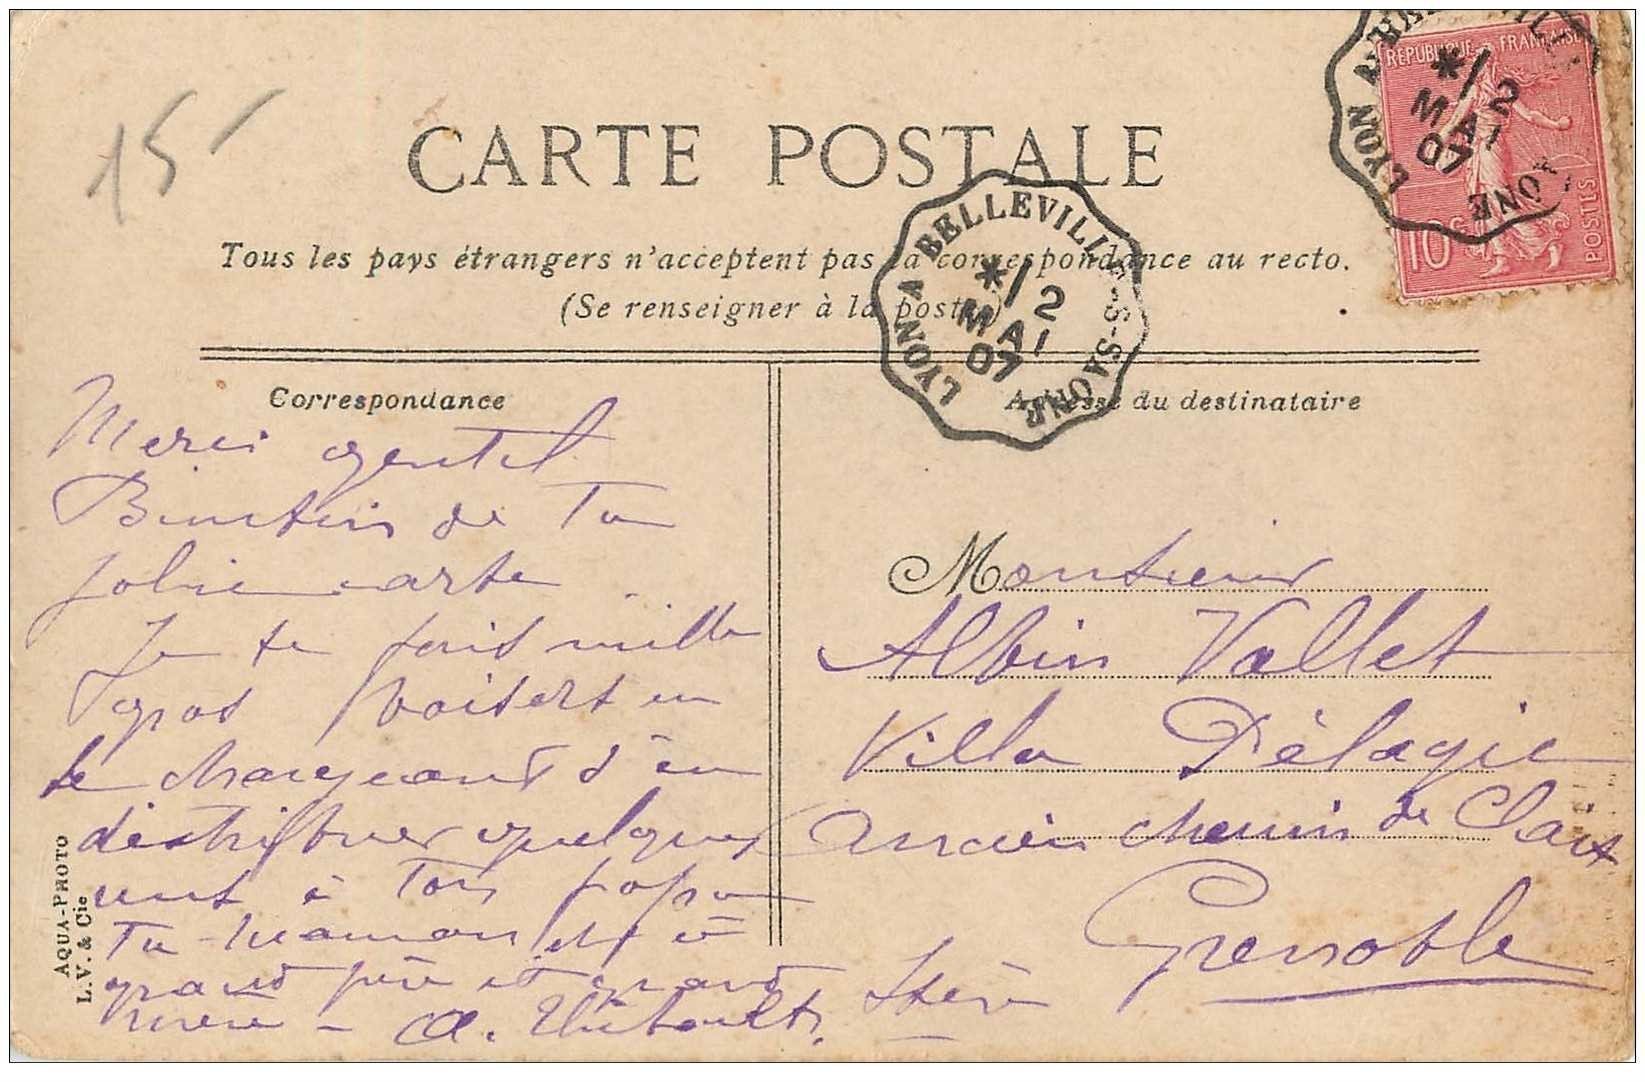 15-
CARTE POSTALE
Tous les pays étrangers n'acceptent pas la correspondance au recto.
(Se renseigner à la poste)
RÉPUBLIQUE FRANÇAISE
10c
POSTES
LYON A BELLEVILLE-S-SAONE
*/2
MAI
07
LYON A BELLEVILLE-S-SAONE
*/2
MAI
07
Correspondance
Merci gentil
de Ta
Jolie carte
Je te fais mille
gros baisers en
te chargeant d'en
distribuer quelques
uns à Ton papa
Ta maman et à
grand père et grand
mère - A. Thibault.
AQUA-PHOTO
L.V. & Cie
Adresse du destinataire
Monsieur
Albin Vallet
Villa Pélagie
Ancien chemin de Claix
Grenoble
Isère